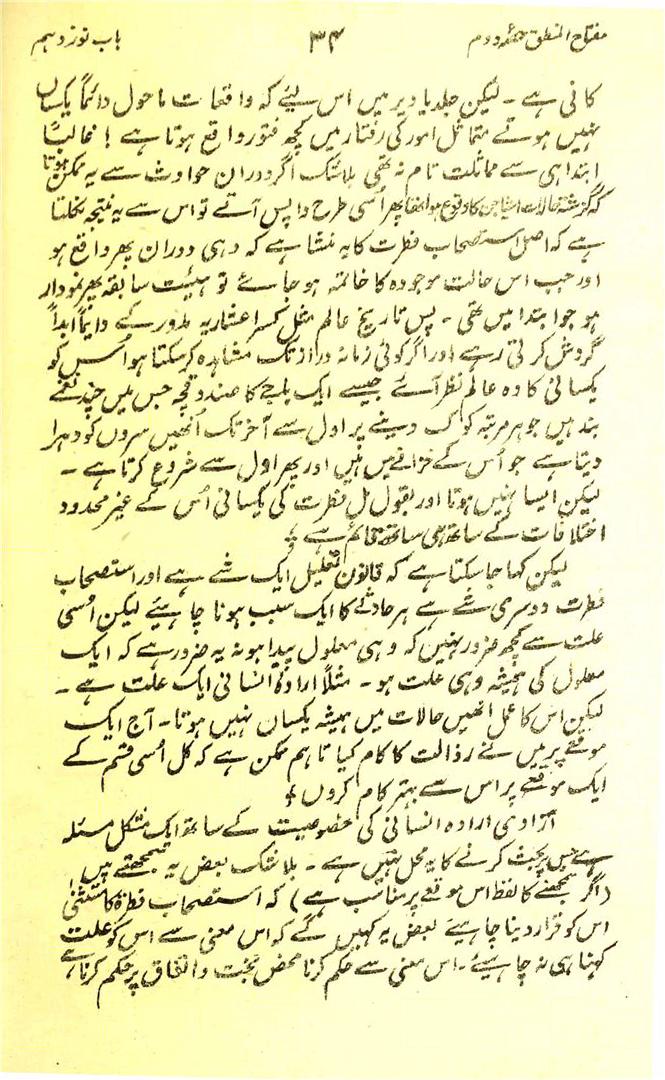 مفتاح المنطق حصہ دوم ۳۴ باب نوزدہم
کافی ہے ۔ لیکن جلد یا دیر میں اس لیئے کہ واقعات ماحول دائماً یکساں
نہیں ہوتے متماثل امور کی رفتار میں کچھ فتور واقع ہوتا ہے ! غالباً
ابتدا ہی سے مماثلت تام نہ تھی بلا شک اگر دوران حوادث سے یہ ممکن ہوتا
کہ گزشتہ حالات اشیا جن کا وقوع ہوا تھا پھر اُسی طرح واپس آتے تو اس سے یہ نتیجہ نکلتا
ہے کہ اصل استصحاب فطرت کا یہ منشا ہے کہ وہی دوران پھر واقع ہو
اور جب اس حالت موجودہ کا خاتمہ ہو جائے تو ہیئت سابقہ پھر نمودار
ہو جو ابتدا میں تھی ۔ پس تاریخ عالم مثل کسر اعشاریہ بدور کے دایماً ابداً
گردش کرتی رہے اور اگر کوئی زمانہ دراز تک مشاہدہ کر سکتا ہو اُس کو
یکسانی کا وہ عالم نظر آئے جیسے ایک باجے کا صندوقچہ جس میں چند نغمے
بند ہیں جو ہر مرتبہ کوک دینے پر اول سے آخر تک اُنھیں سروں کو دہرا
دیتا ہے جو اُس کے خزانے میں ہیں اور پھر اول سے شروع کرتا ہے ۔
لیکن ایسا نہیں ہوتا اور بقول مل فطرت کی یکسانی اُس کے غیر محدود
اختلافات کے ساتھ ہی ساتھ قائم ہے ؛
لیکن کہا جا سکتا ہے کہ قانون تعلیل ایک شے ہے اور استصحاب
فطرت دوسری شے ہے ہر حادثے کا ایک سبب ہونا چاہیئے لیکن اُسی
علت سے کچھ ضرور نہیں کہ وہی معلول پیدا ہو نہ یہ ضرور ہے کہ ایک
معلول کی ہمیشہ وہی علت ہو ۔ مثلاً ارادۂ انسانی ایک علت ہے ۔
لیکن اس کا عمل انھیں حالات میں ہمیشہ یکساں نہیں ہوتا ۔ آج ایک
موقعے پر میں نے رذالت کا کام کیا تاہم ممکن ہے کہ کل اُسی قسم کے
ایک موقعے پر اس سے بہتر کام کروں ؛
آزادی ارادہ انسانی کی خصوصیت کے ساتھ ایک مشکل مسئلہ
ہے جس پر بحث کرنے کا یہ محل نہیں ہے ۔ بلا شک بعض یہ سمجھتے ہیں
(اگر سمجھنے کا لفظ اس موقعے پر مناسب ہے) کہ استصحاب فطرۃ کا مستثنیٰ
اس کو قرار دینا چاہیئے بعض یہ کہیں گے کہ اس معنی سے اس کو علت
کہنا ہی نہ چاہیئے ۔ اس معنی سے حکم کرنا محض بخت و اتفاق پر حکم کرنا ہے